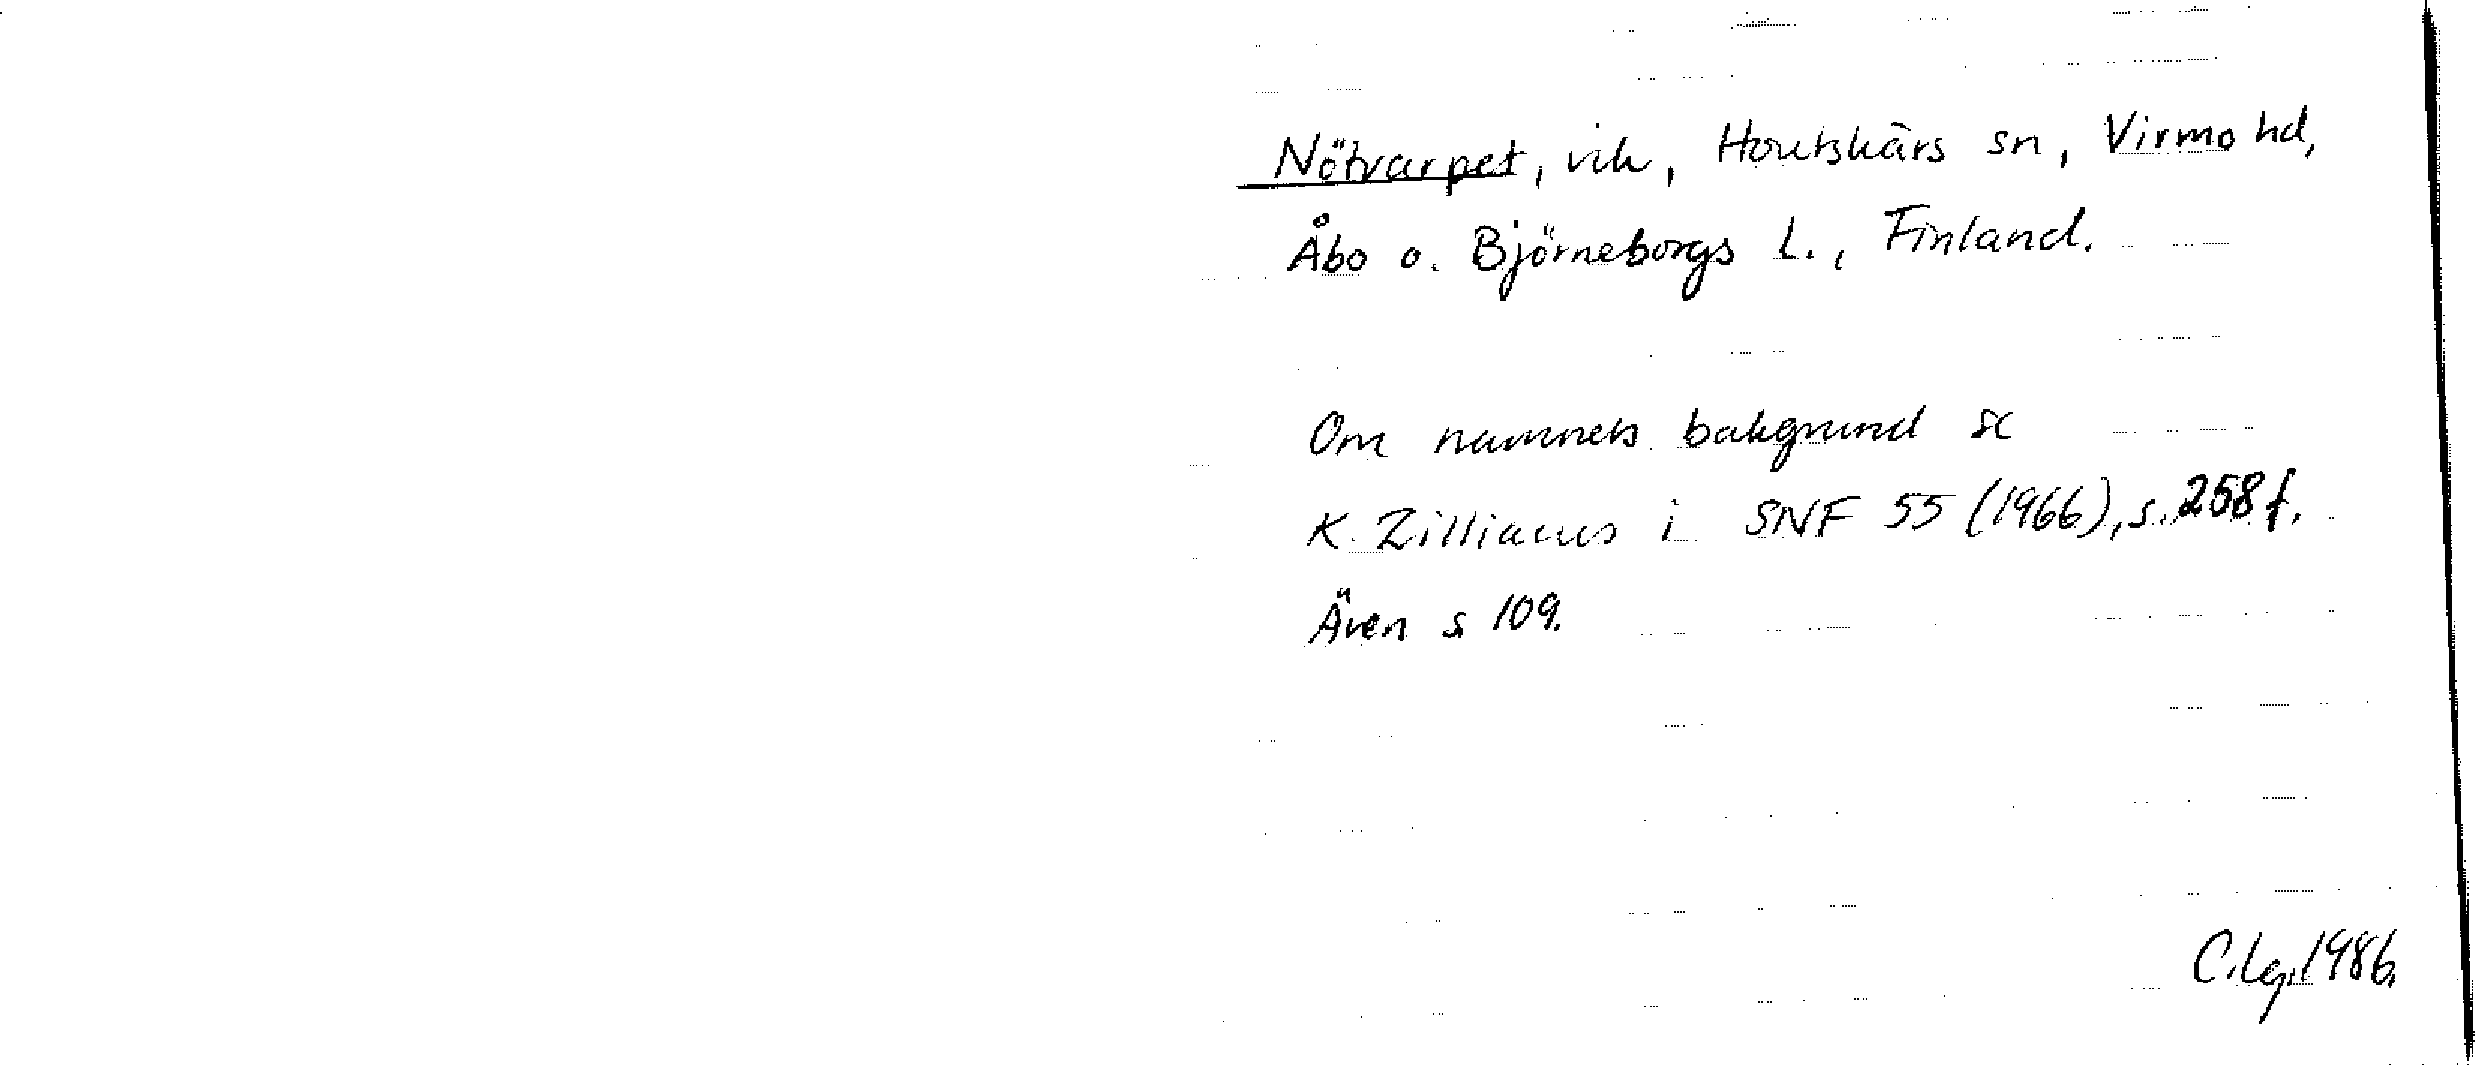 Nötvarpet, vik, Houtskärs sn, Virmo hd,
Åbo o. Björneborgs L., Finland.
Om namnets bakgrund se
K. Zilliacus i SNF 55 (1966), s. 258 f.
Även s 109.
C.Lg. 1986.